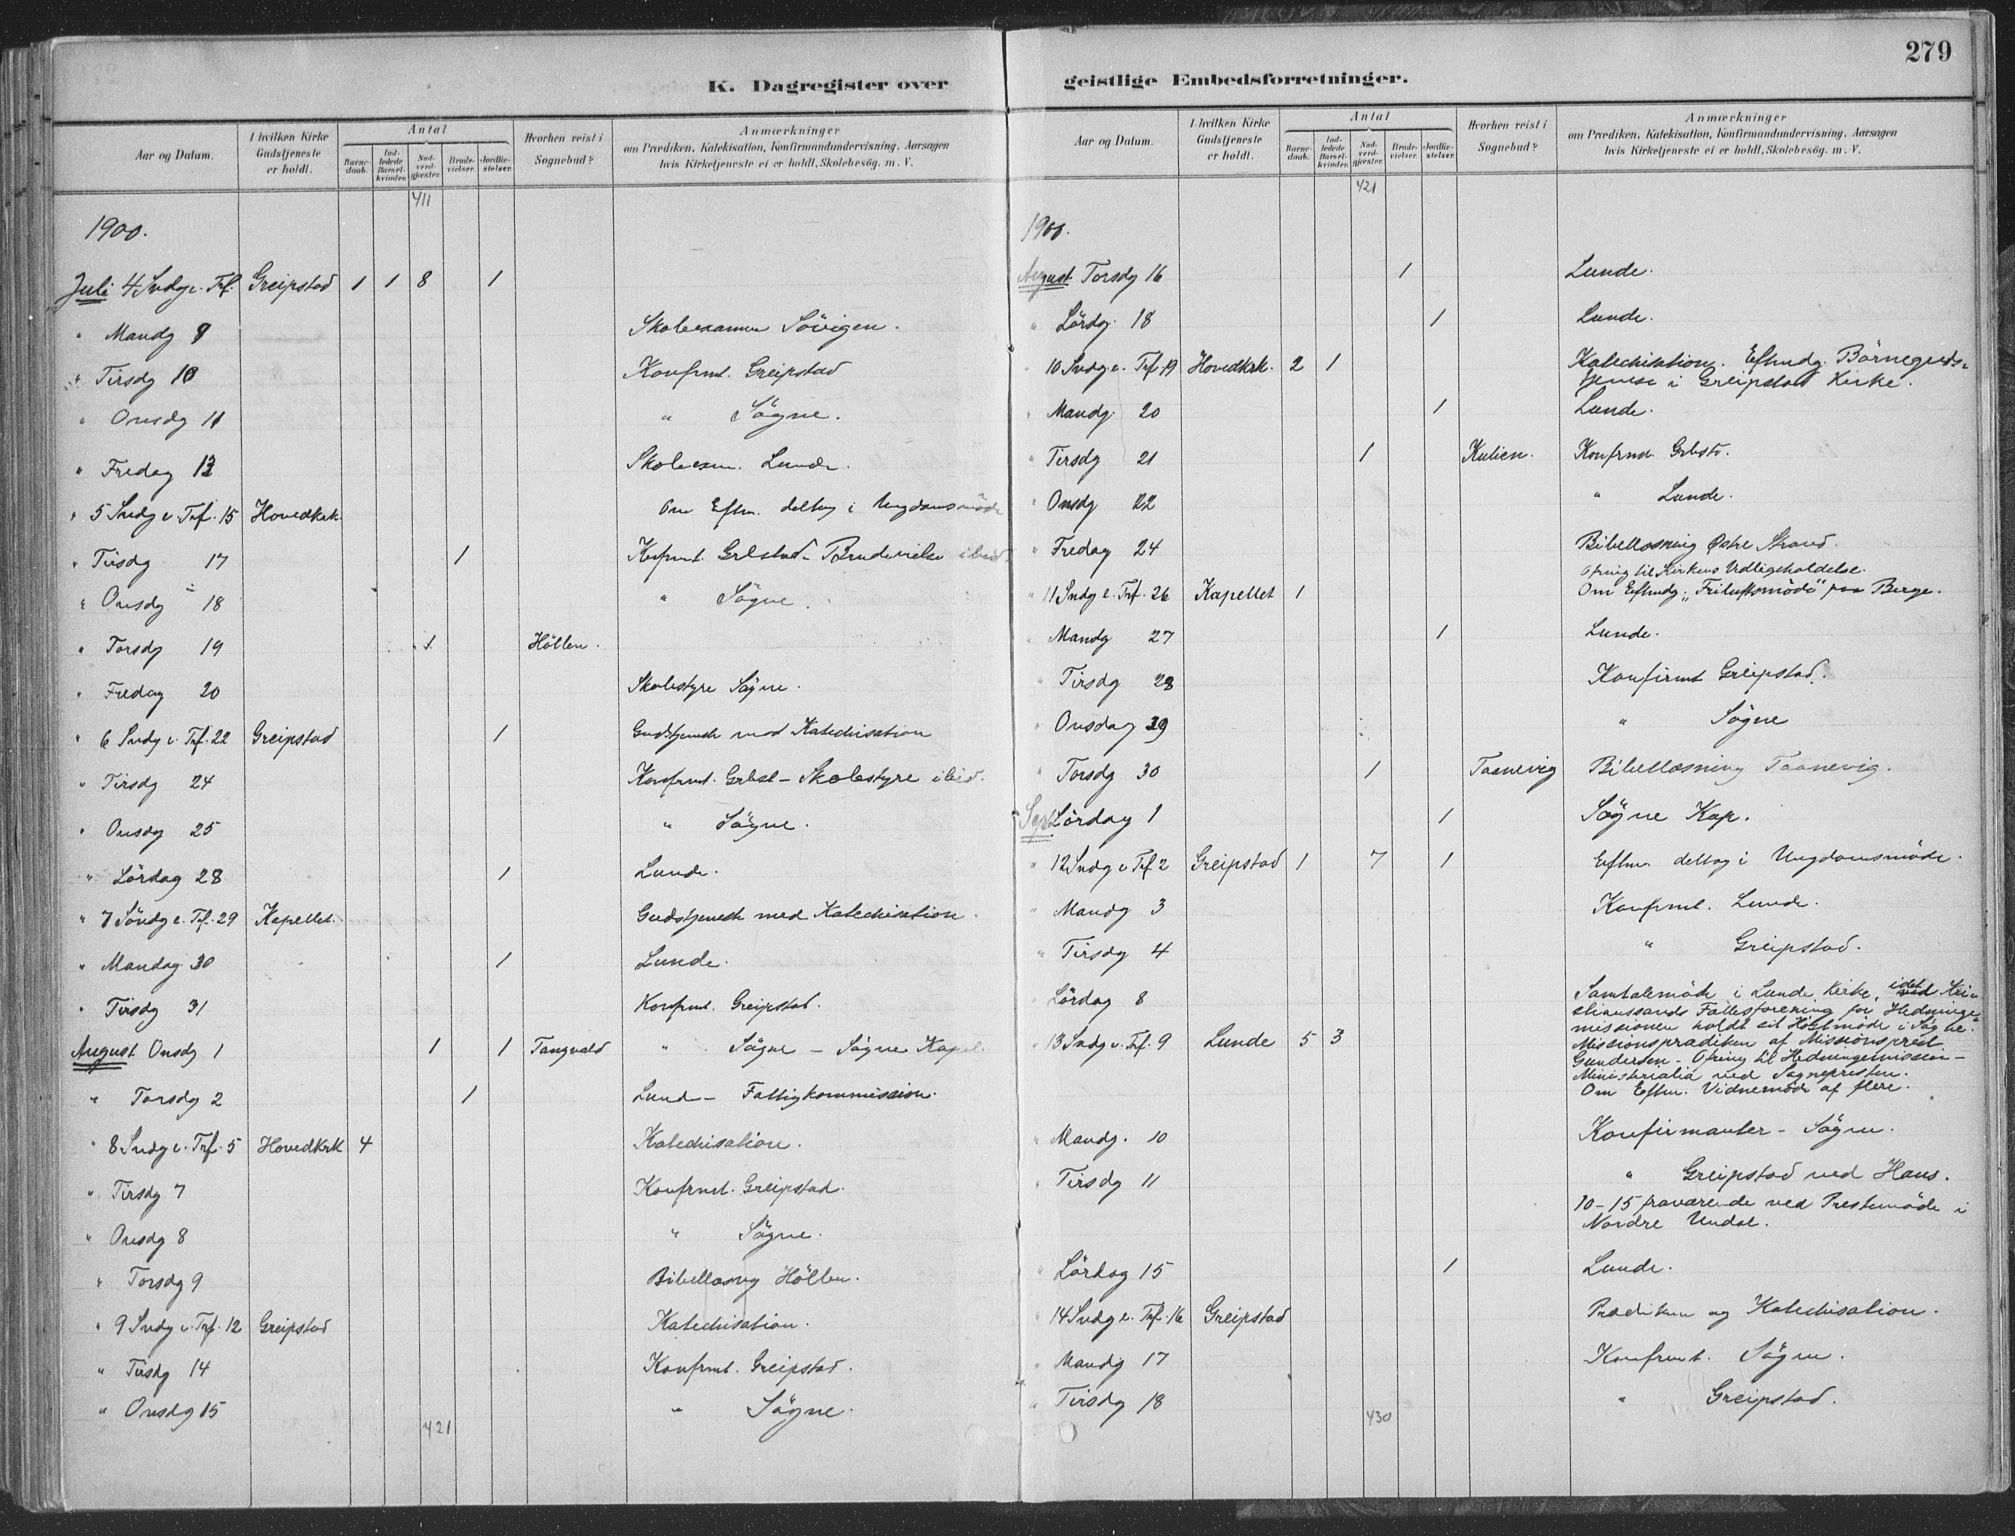 279
K. Dagregister over
Aar og Datum.
I hvilken Kirke Gudstjeneste er holdt.
Antal
Barnedaab.
Indledede Barselkvinder.
Nadverdgjester.
Brudevielser.
Jordfæstelser.
Hvorhen reist i Sognebud?
Anmærkninger
om Prædiken, Katekisation, Konfirmandundervisning, Aarsagen
hvis Kirketjeneste ei er holdt, Skolebesøg. m. V.
411
1900.
Juli 4 Sndg e. Trf. Greipstad 1 1 8 1
" Mandg 9 Skoleexamen Sövigen.
" Tirsdg 10 Konfrmt. Greipstad
" Onsdg 11 " Sögne.
" Fredag 13 Skoleexm. Lunde.
" 5 Sndg e. Trf. 15 Hovedkrk. Om Eftm. deltog i Ungdomsmöde
" Tirsdg 17 1 Konfrmt. Grbstad - Brudevielse ibid.
" Onsdg 18 " Sögne.
" Torsdg 19 1 Höllen.
" Fredag 20 Skolestyre Sögne.
" 6 Sndg e. Trf. 22 Greipstad 1 Gudstjeneste med Katechisation
" Tirsdg 24 Konfrmt. Grbst - Skolestyre ibid.
" Onsdg 25 " Sögne.
" Lördag 28 1 Lunde.
" 7 Söndg e. Trf. 29 Kapellet. Gudstjeneste med Katechisation.
" Mandag 30 1 Lunde.
" Tirsdg 31 Konfrmt. Greipstad.
August Onsdg 1 1 1 Tangvald " Sögne - Sögne Kapel.
" Torsdg 2 1 Lund - Fattigkommission.
" 8 Sndg e. Trf. 5 Hovedkrk 4 Katechisation.
" Tirsdg 7 Konfrmt. Greipstad.
" Onsdg 8 " Sögne.
" Torsdg 9 Bibellæsng Höllen.
" 9 Sndg e. Trf. 12 Greipstad Katechisation.
" Tirsdg 14 Konfrmt. Greipstad.
" Onsdg 15 " Sögne.
421
geistlige Embedsforretninger.
Aar og Datum.
I hvilken Kirke Gudstjeneste er holdt.
Antal
Barnedaab.
Indledede Barselkvinder.
Nadverdgjester.
Brudevielser.
Jordfæstelser.
Hvorhen reist i Sognebud?
Anmærkninger
om Prædiken, Katekisation, Konfirmandundervisning, Aarsagen
hvis Kirketjeneste ei er holdt, Skolebesøg. m. V.
421
1900.
August Torsdg 16 1 Lunde.
" Lördg. 18 1 Lunde.
" 10 Sndg e. Trf. 19 Hovedkrk. 2 1 Katechisation. Eftmdg. Börneguds-
tjeneste i Greipstad Kirke.
" Mandg. 20 1 Lunde.
" Tirsdg 21 1 Kulien. Konfrmd. Grbstd.
" Onsdg 22 " Lunde.
" Fredag 24 Bibellæsning Østre Strand.
Ofring til Kirkens Vedligeholdelse.
" 11 Sndg e. Trf. 26 Kapellet 1 Om Eftmdg. „Friluftsmöde" paa Berge.
" Mandg 27 1 Lunde.
" Tirsdg 28 Konfirmt Greipstad.
" Onsdag 29 " Sögne
" Torsdg 30 1 Taanevig Bibellæsning Taanevig.
Sept Lördag 1 1 Sögne Kap.
" 12 Sndg e Trf 2 Greipstad 1 7 1 Eftm. deltog i Ungdomsmöde.
" Mandg 3 Konfrmt. Lunde.
" Tirsdg 4 " Greipstad.
" Lördag 8 Samtalemöde i Lunde Kirke, idet Kri-
stianssands Fællesforening for Hedninge-
missionen holdt sit Höstmöde i Sögne.
" 13 Sndg e. Trf. 9 Lunde 5 3 Missionsprædiken af Missionsprest
Gundersen - Ofring til Hedningemission -
Ministerialia ved Sognepresten.
Om Eftm. Vidnemöde af flere.
" Mandg. 10 Konfirmanter - Sögne.
" Tirsdg 11 " Greipstad ved Haus.
10-15 fraværende ved Prestemöde i
Nordre Undal.
" Lördag 15 1 Lunde.
" 14 Sndg e. Trf. 16 Greipstad Prædiken og Katechisation.
" Mandg 17 Konfrmt. Sögne.
" Tirsdg 18 " Greipstad.
430